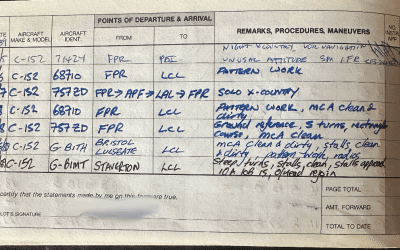 POINTS OF DEPARTURE & ARRIVAL
AIRCRAFT MAKE & MODEL AIRCRAFT IDENT. FROM TO REMARKS, PROCEDURES, MANEUVERS NO. INSTR. APP.
NIGHT X COUNTRY VOR NAVIGATION
C-152 71424 FPR UNUSUAL ATTITUDE SIM IFR
C-152 68710 FPR LCL PATTERN WORK
C-152 757ZD FPR → APF → LAL → FPR SOLO X-COUNTRY
C-152 68710 FPR LCL PATTERN WORK, MCA CLEAN & dirty
C-152 757ZD FPR LCL Ground reference, S turns, rectangle course, MCA clean
C-152 G-BITH BRISTOL LULSGATE LCL MCA clean & dirty, stalls, clean & dirty, pattern work, radios
C-152 G-BIMT STAVERTON LCL Steep turns, stalls, clean, stalls approach
O/Head rejoin
certify that the statements made by me on this form are true.
PILOT'S SIGNATURE
PAGE TOTAL
AMT. FORWARD
TOTAL TO DATE